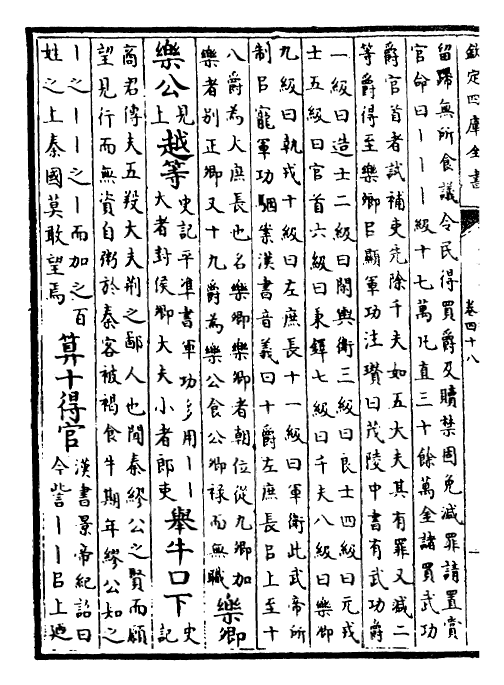 欽定四庫全書 卷四十八 一
留蹛無所食議令民得買爵及贖禁固免减罪請置賞
官命曰丨丨丨級十七萬凡直三十餘萬金諸買武功
爵官首者試補吏先除千夫如五大夫其有罪又减二
等爵得至樂卿㠯顯軍功注瓚曰茂陵中書有武功爵
一級曰造士二級曰閑輿衛三級曰良士四級曰元戎
士五級曰官首六級曰秉鐸七級曰千夫八級曰樂卿
九級曰執戎十級曰左庶長十一級曰軍衛此武帝所
制㠯寵軍功駰案漢書音義曰十爵左庶長㠯上至十
八爵爲大庶長也名樂卿樂卿者朝位從九卿加
樂者别正卿又十九爵爲樂公食公卿禄而無職 樂卿
樂公 見上 越等 史記平準書軍功多用丨丨大者封侯卿大夫小者郎吏 舉牛口下 史記
商君傳夫五羖大夫荆之鄙人也聞秦繆公之賢而願
望見行而無資自鬻於秦客被褐食牛期年繆公知之
丨之丨丨之丨而加之百
姓之上秦國莫敢望焉 算十得官 漢書景帝紀詔曰今訾丨丨㠯上廼